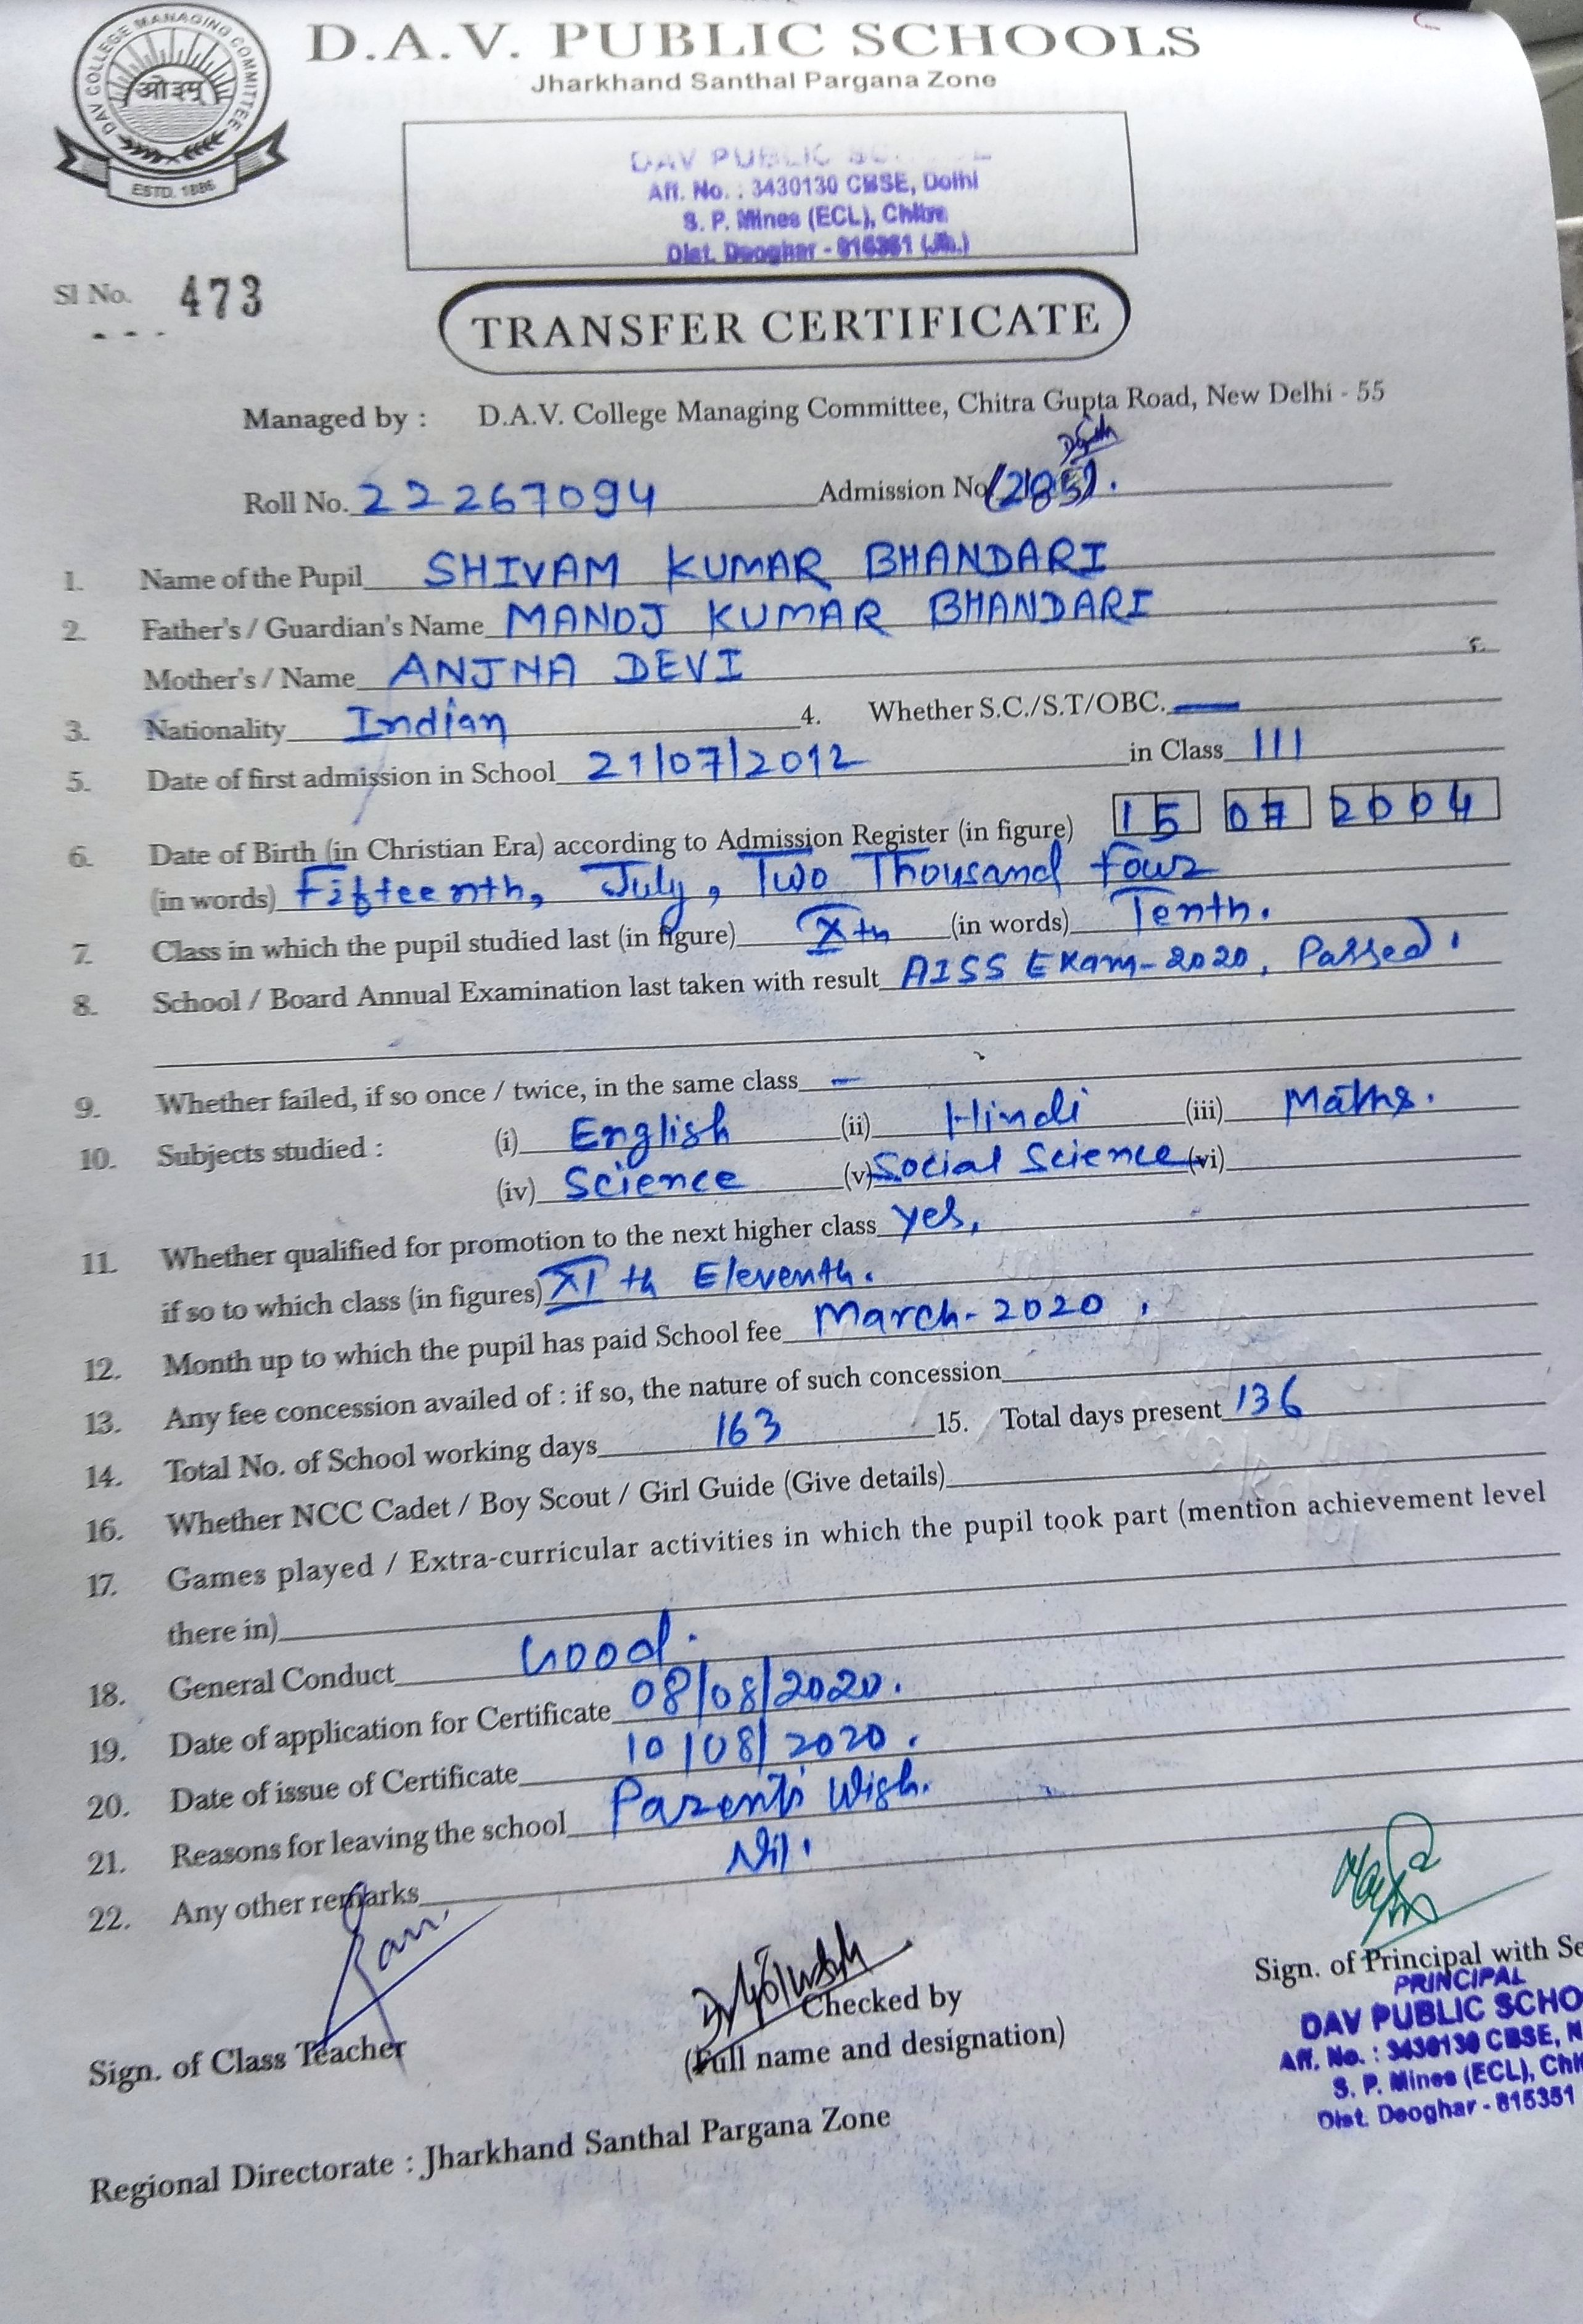 DAV COLLEGE MANAGING COMMITTEE
ओ३म्
ESTD. 1886
D.A.V. PUBLIC SCHOOLS
Jharkhand Santhal Pargana Zone
DAV PUBLIC
Aff. No. : 3430130 CBSE, Delhi
S. P. Mines (ECL), Chitra
Dist. Deoghar - 815351 (Jh.)
Sl No. 473
TRANSFER CERTIFICATE
Managed by : D.A.V. College Managing Committee, Chitra Gupta Road, New Delhi - 55
Roll No. 22267094 Admission No
1. Name of the Pupil SHIVAM KUMAR BHANDARI
2. Father's / Guardian's Name MANOJ KUMAR BHANDARI
Mother's / Name ANJNA DEVI
3. Nationality Indian 4. Whether S.C./S.T/OBC. —
5. Date of first admission in School 21/07/2012 in Class III
6. Date of Birth (in Christian Era) according to Admission Register (in figure) 15 07 2004
(in words) Fifteenth, July, Two Thousand four
7. Class in which the pupil studied last (in figure) Xth (in words) Tenth.
8. School / Board Annual Examination last taken with result AISS Exam-2020, Passed.
9. Whether failed, if so once / twice, in the same class —
10. Subjects studied : (i) English (ii) Hindi (iii) Maths.
(iv) Science (v) Social Science (vi)
11. Whether qualified for promotion to the next higher class yes,
if so to which class (in figures) XI th Eleventh.
12. Month up to which the pupil has paid School fee March-2020.
13. Any fee concession availed of : if so, the nature of such concession
14. Total No. of School working days 163 15. Total days present 136
16. Whether NCC Cadet / Boy Scout / Girl Guide (Give details)
17. Games played / Extra-curricular activities in which the pupil took part (mention achievement level
there in)
18. General Conduct Good.
19. Date of application for Certificate 08/08/2020.
20. Date of issue of Certificate 10/08/2020.
21. Reasons for leaving the school Parent's Wish.
22. Any other remarks Nil.
Sign. of Class Teacher
Checked by
(Full name and designation)
Sign. of Principal with Se
PRINCIPAL
DAV PUBLIC SCHO
Aff. No. : 3430130 CBSE, N
S. P. Mines (ECL), Chi
Dist. Deoghar - 815351
Regional Directorate : Jharkhand Santhal Pargana Zone